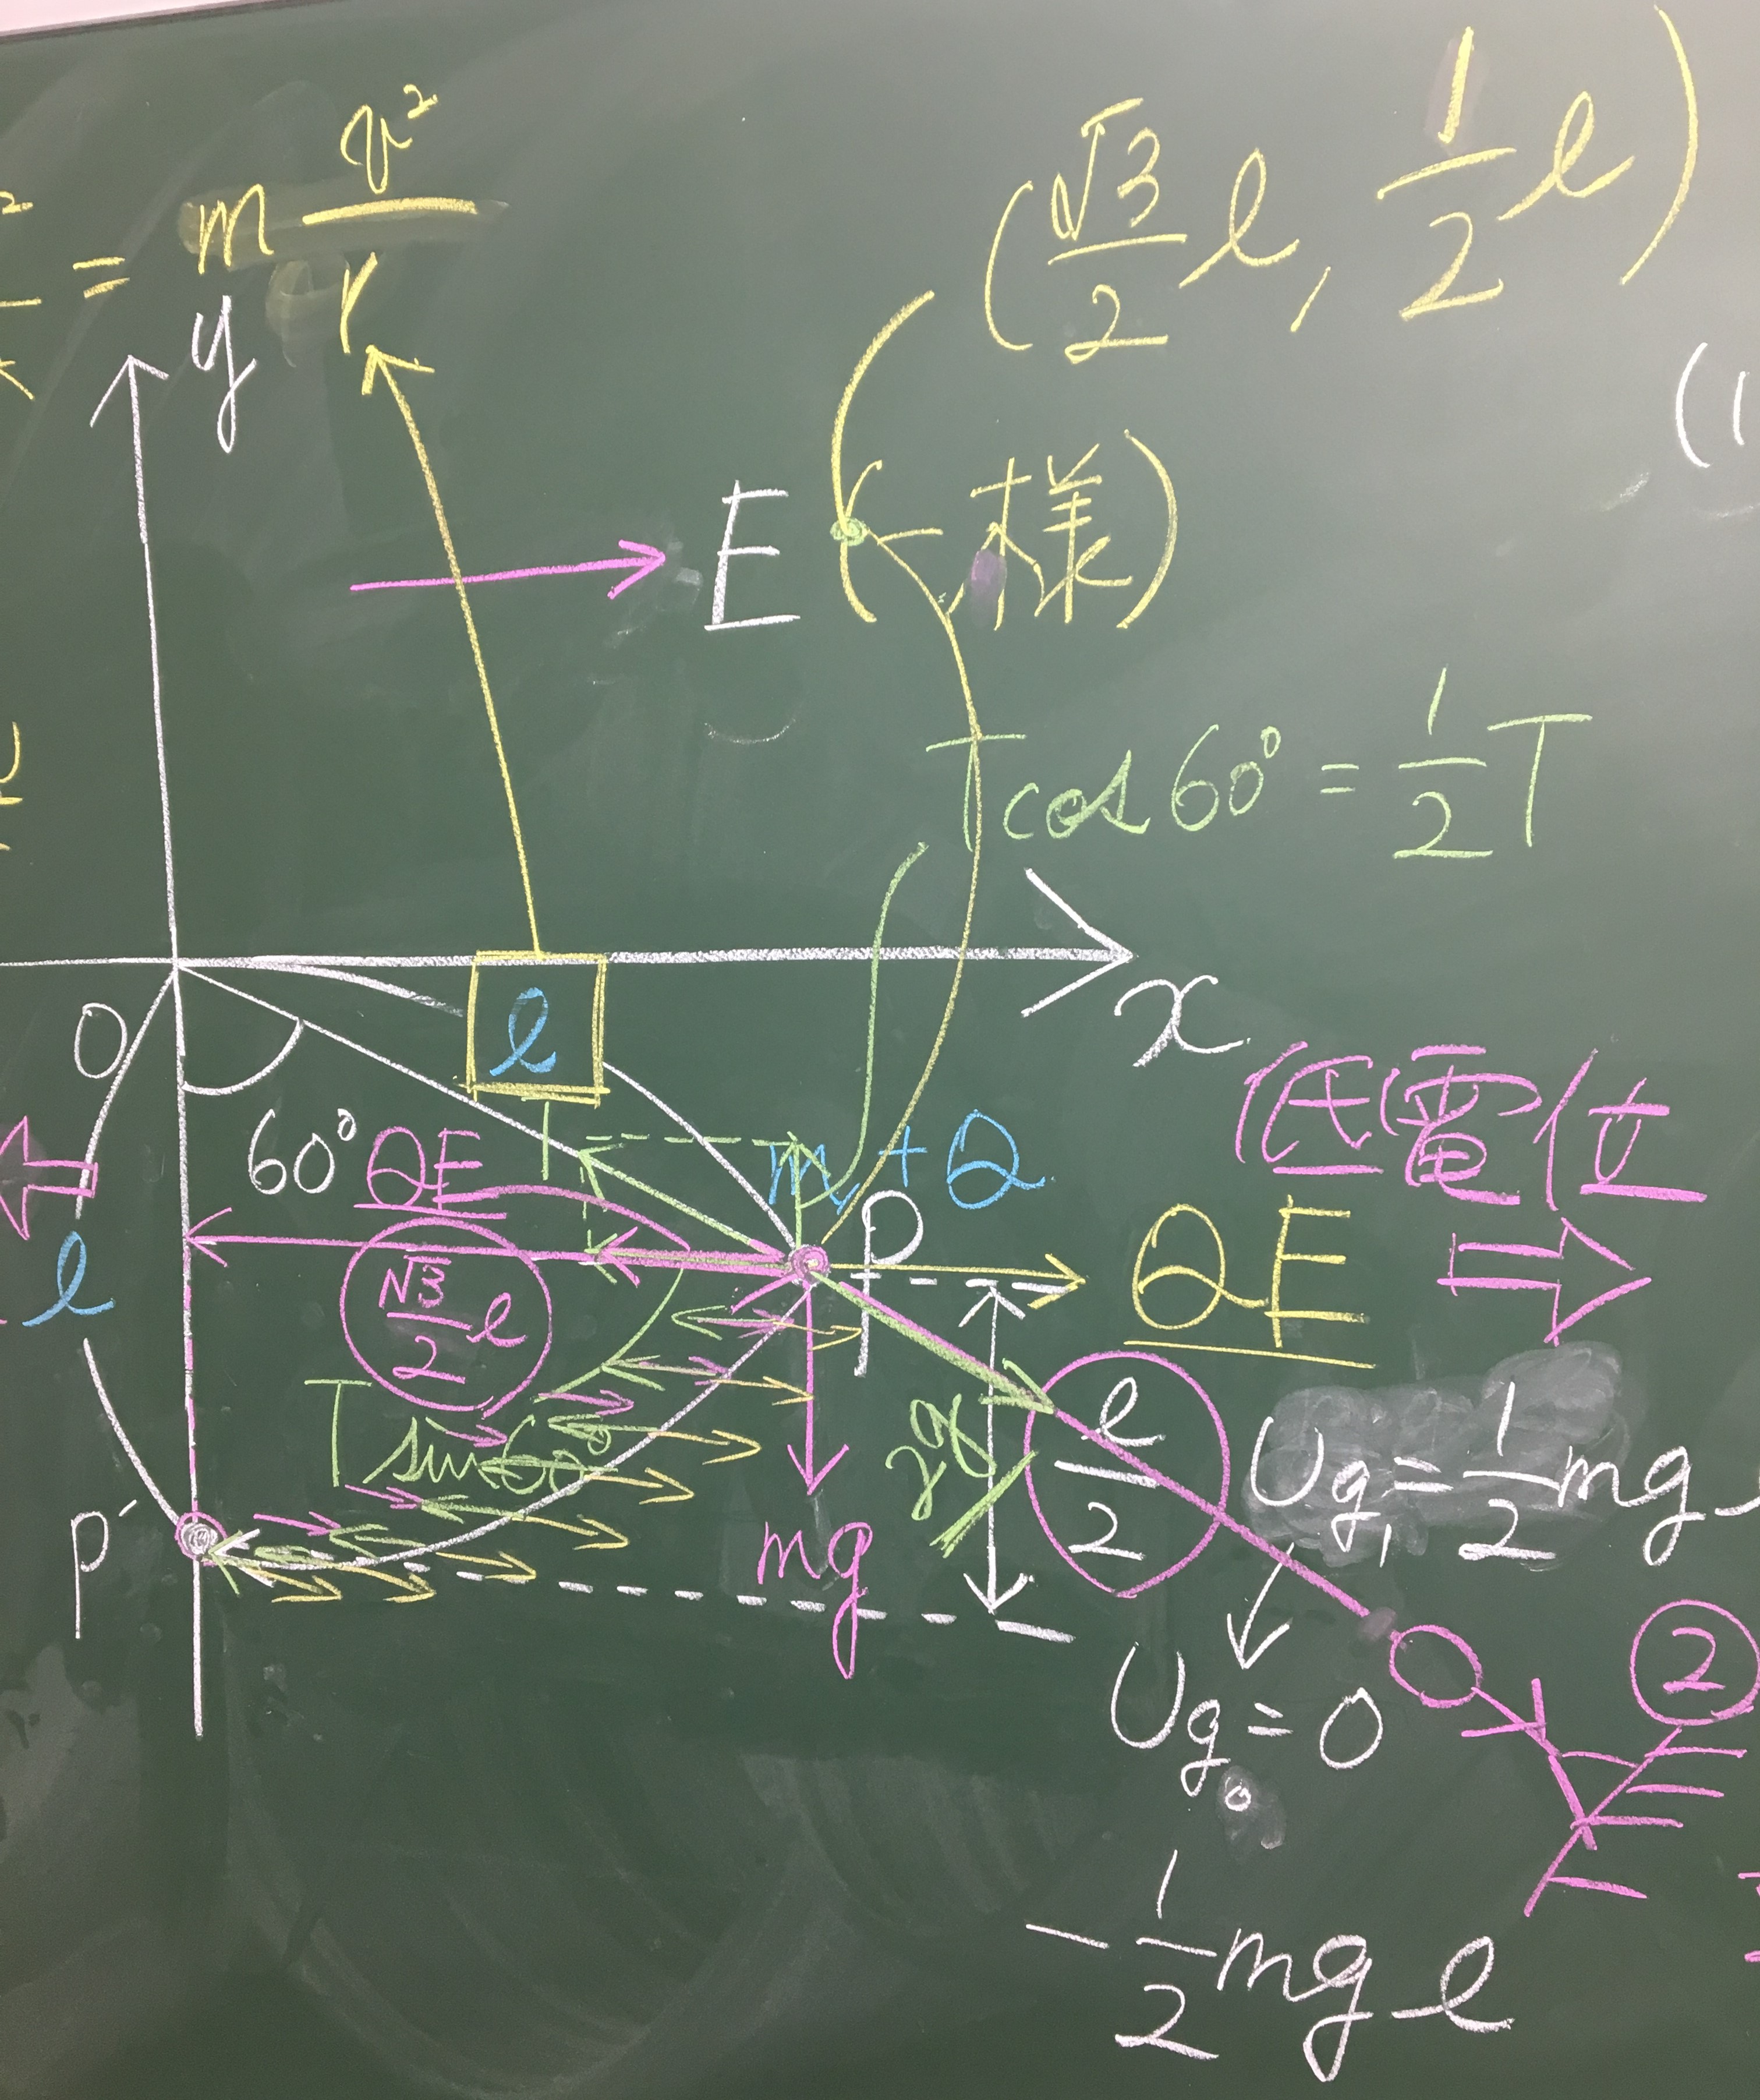 = m v²/r
(√3/2 ℓ, 1/2 ℓ)
y
(1
E (一様)
T cos60° = 1/2 T
x
O
ℓ
低電位
60°
QE
T
m, +Q
P
QE
ℓ
√3/2 ℓ
T sin60°
2g
ℓ/2
Ug₁ = 1/2 mg
P´
mg
Ug₀ = 0
2
− 1/2 mgℓ